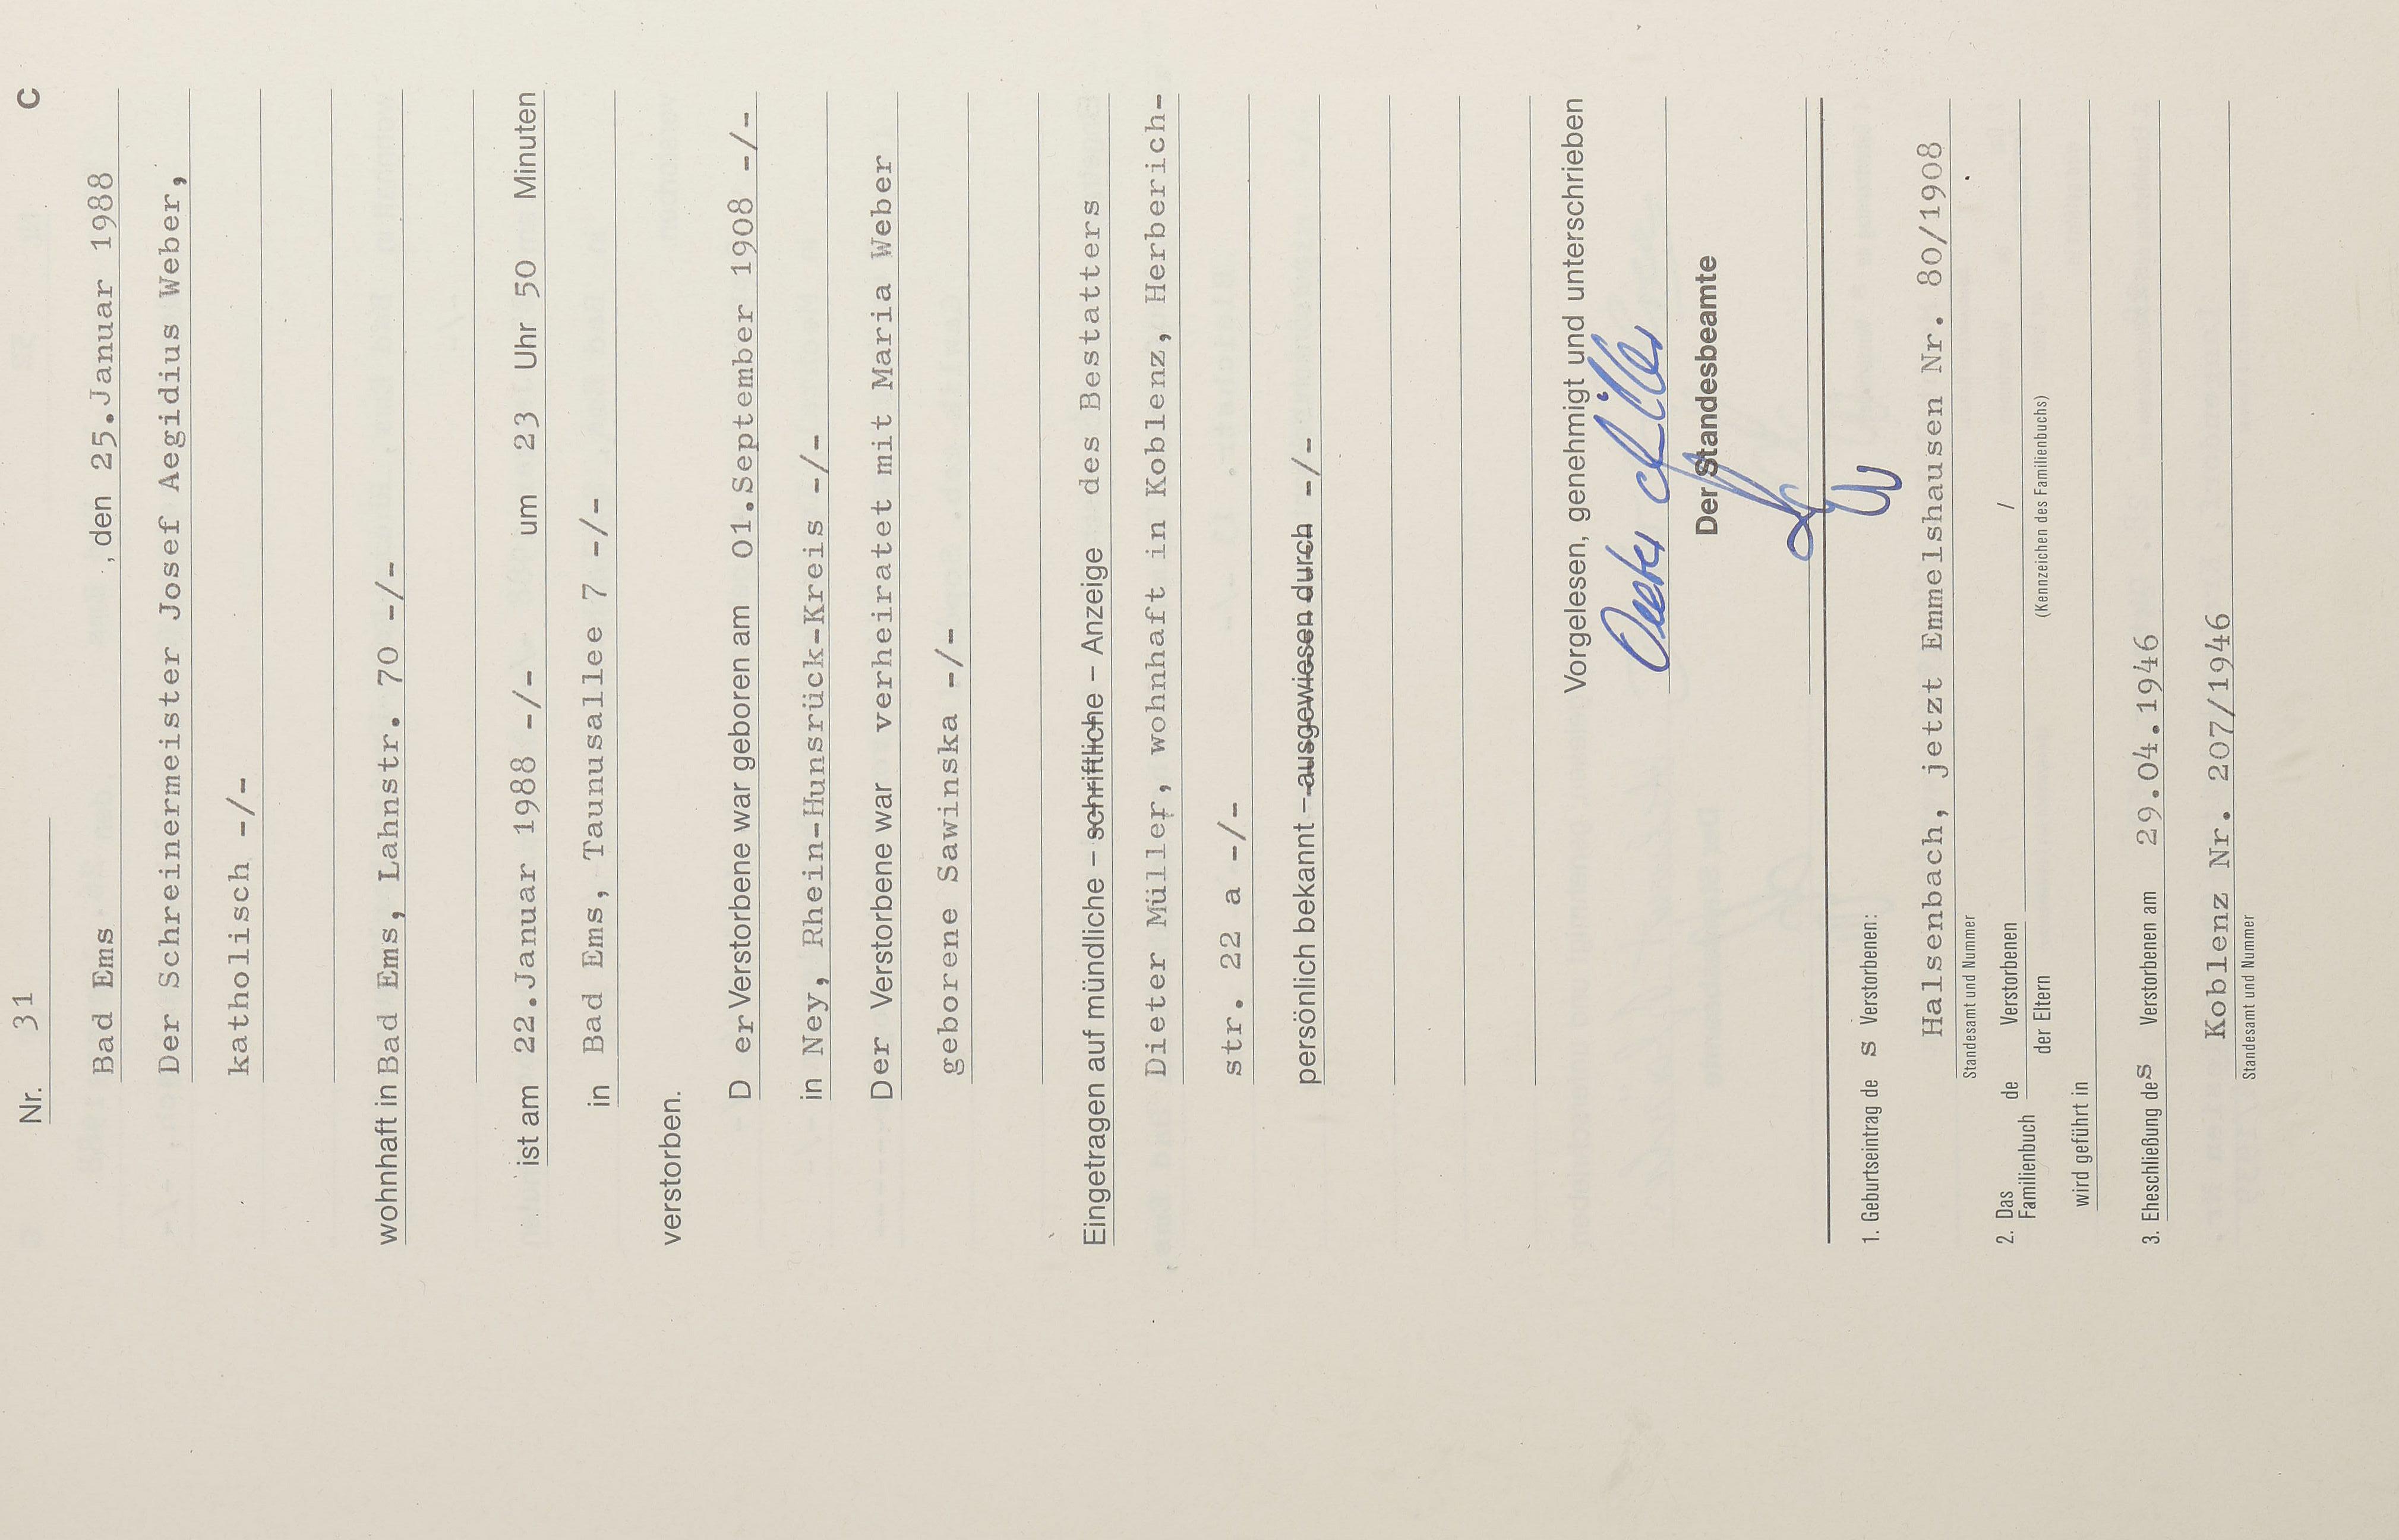 Nr. 31 C
Bad Ems , den 25.Januar 1988
Der Schreinermeister Josef Aegidius Weber,
katholisch -/-
wohnhaft in Bad Ems, Lahnstr. 70 -/-
ist am 22.Januar 1988 -/- um 23 Uhr 50 Minuten
in Bad Ems, Taunusallee 7 -/-
verstorben.
D er Verstorbene war geboren am 01.September 1908 -/-
in Ney, Rhein-Hunsrück-Kreis -/-
Der Verstorbene war verheiratet mit Maria Weber
geborene Sawinska -/-
Eingetragen auf mündliche – schriftliche – Anzeige des Bestatters
Dieter Müller, wohnhaft in Koblenz, Herberich-
str. 22 a -/-
persönlich bekannt – ausgewiesen durch -/-
Vorgelesen, genehmigt und unterschrieben
Der Standesbeamte
1. Geburtseintrag de s Verstorbenen:
Halsenbach, jetzt Emmelshausen Nr. 80/1908
Standesamt und Nummer
2. Das Familienbuch de Verstorbenen /
der Eltern (Kennzeichen des Familienbuchs)
wird geführt in
3. Eheschließung des Verstorbenen am 29.04.1946
Koblenz Nr. 207/1946
Standesamt und Nummer